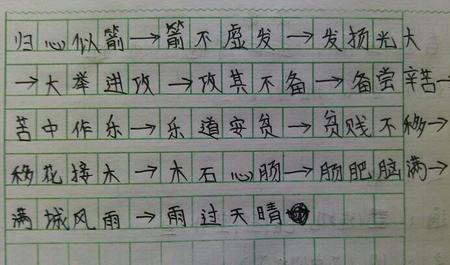 归心似箭→箭不虚发→发扬光大
→大举进攻→攻其不备→备尝辛苦→
苦中作乐→乐道安贫→贫贱不移→
移花接木→木石心肠→肠肥脑满→
满城风雨→雨过天晴